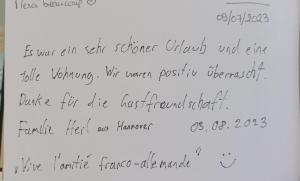 Merci beaucoup ☺
09/07/2023
Es war ein sehr schöner Urlaub und eine
tolle Wohnung. Wir waren positiv überrascht.
Danke für die Gastfreundschaft.
Familie Heil aus Hannover 03.08.2023
„Vive l'amitié franco-allemande" :)